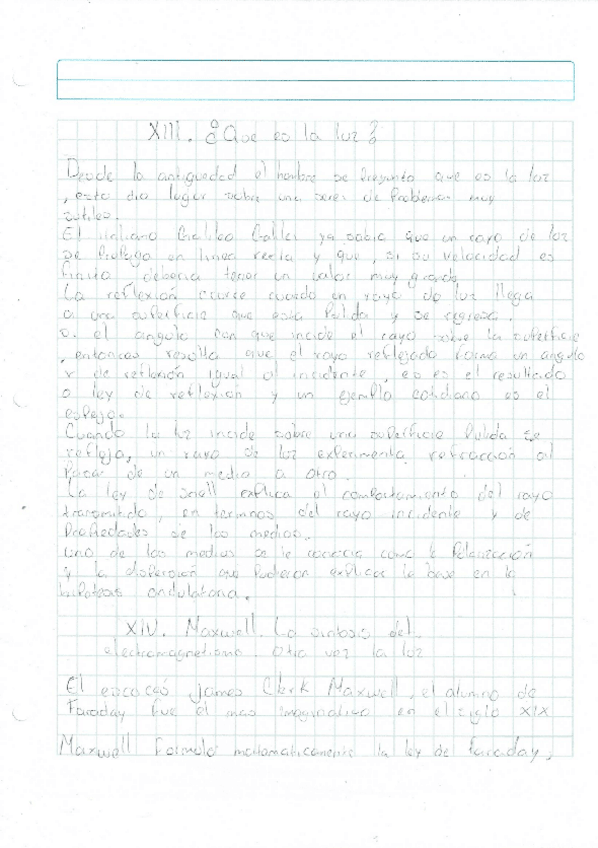 XIII. ¿Que es la luz?
Desde la antiguedad el hombre se Pregunto que es la luz
, esto dio lugar sobre una series de Problemas muy
sutiles.
El italiano Galileo Galilei ya sabia que un rayo de luz
se Propaga en linea recta y que, si su velocidad es
finita deberia tener un valor muy grande
La reflexión ocurre cuando en rayo de luz llega
a una superficie que esta Pulida y se regresa.
el angulo con que incide el rayo sobre la superficie
, entonces resulta que el rayo reflejado forma un angulo
r de reflexión igual al incidente, es es el resultado
o ley de reflexión y un ejemplo cotidiano es el
espejo.
Cuando la luz incide sobre una superficie Pulida se
refleja, un rayo de luz experimenta refracción al
Pasar de un medio a otro.
La ley de Snell explica el comportamiento del rayo
transmitido, en terminos del rayo incidente y de
Propiedades de los medios.
Uno de los medios se le conocia como la Polarización
y la dispersión que Pudieron explicar la base en la
hipotesis ondulatoria.
XIV. Maxwell. La sintesis del
electromagnetismo. Otra vez la luz
El escocés james Clerk Maxwell, el alumno de
Faraday fue el mas imaginativo en el siglo XIX
Maxwell Formulo matematicamente la ley de Faraday,